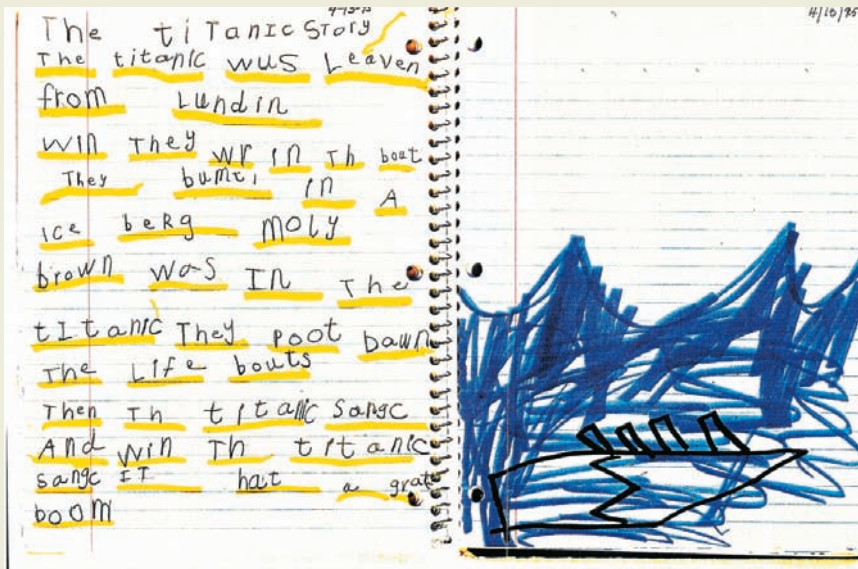 4-13-95
The tiTanic Story
The titanic wus Leaven
from Lundin
win They wr in Th boat
They bumti in A
ice beRg moly
brown was In The
tItanic They poot dawn
The Life bouts
Then Th titanic sangc
And win Th titanic
sangc IT hat a grat
boom
4/18/95